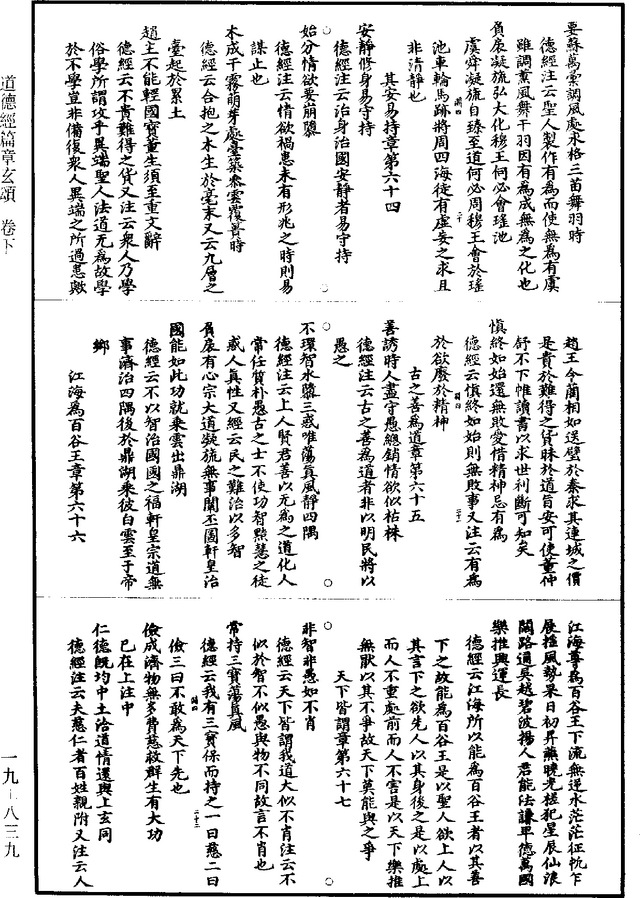 要蘇萬彙調風處永格三苗舞羽時
德經注云聖人製作有為而使無為有虞
雖調薰風舞干羽因有為成無為之化也
負扆凝旒弘大化穆王何必會瑤池
虞舜凝旒自臻至道何必周穆王會於瑤
池車輪馬跡將周四海徒有虛妄之求且
非清靜也
其安易持章第六十四
安靜修身易守持
德經注云治身治國安靜者易守持
始分情欲要崩隳
德經注云情欲禍患未有形兆之時則易
謀止也
木成千霧萌芽處臺築參雲覆簣時
德經云合抱之木生於毫末又云九層之
臺起於累土
趙主不能輕國寶董生須至重文辭
德經云不貴難得之貨又注云衆人乃學
俗學所謂攻乎異端聖人法道无為故學
於不學豈非備復衆人異端之所過患歟
趙王令藺相如送璧於秦求其連城之價
是貴於難得之貨昧於道旨安可使董仲
舒不下帷讀書以求世利斷可知矣
慎終如始還無敗愛惜精神忌有為
德經云慎終如始則無敗事又注云有為
於欲廢於精神
古之善為道章第六十五
善誘時人盡守愚總銷情欲似枯株
德經注云古之善為道者非以明民將以
愚之
不環智水隳三惑唯蕩真風靜四隅
德經注云上人賢君善以无為之道化人
常任質朴愚古之士不使功智黠慧之徒
惑人真性又經云民之難治以多智
負扆有心宗大道凝旒無事闡丕圖軒皇治
國能如此功就乘雲出鼎湖
德經云不以智治國國之福軒皇宗道無
事濟治四隅後於鼎湖乘彼白雲至于帝
鄉
江海為百谷王章第六十六
江海尊為百谷王下流無逆水茫茫征帆乍
展搖風勢杲日初昇蘸曉光槎犯星辰仙浪
闊路通吳越碧波揚人君能法謙卑德萬國
樂推興運長
德經云江海所以能為百谷王者以其善
下之故能為百谷王是以聖人欲上人以
其言下之欲先人以其身後之是以處上
而人不重處前而人不害是以天下樂推
無猒以其不爭故天下莫能與之爭
天下皆謂章第六十七
非智非愚如不肖
德經云天下皆謂我道大似不肖注云不
似於智不似愚與物不同故言不肖也
常持三寶蕩真風
德經云我有三寶保而持之一曰慈二曰
儉三曰不敢為天下先也
儉成濟物無多費慈救群生有大功
已在上注中
仁德既均中土洽道情還與上玄同
德經注云夫慈仁者百姓親附又注云人
道德經篇章玄頌 卷下
一九-八三九